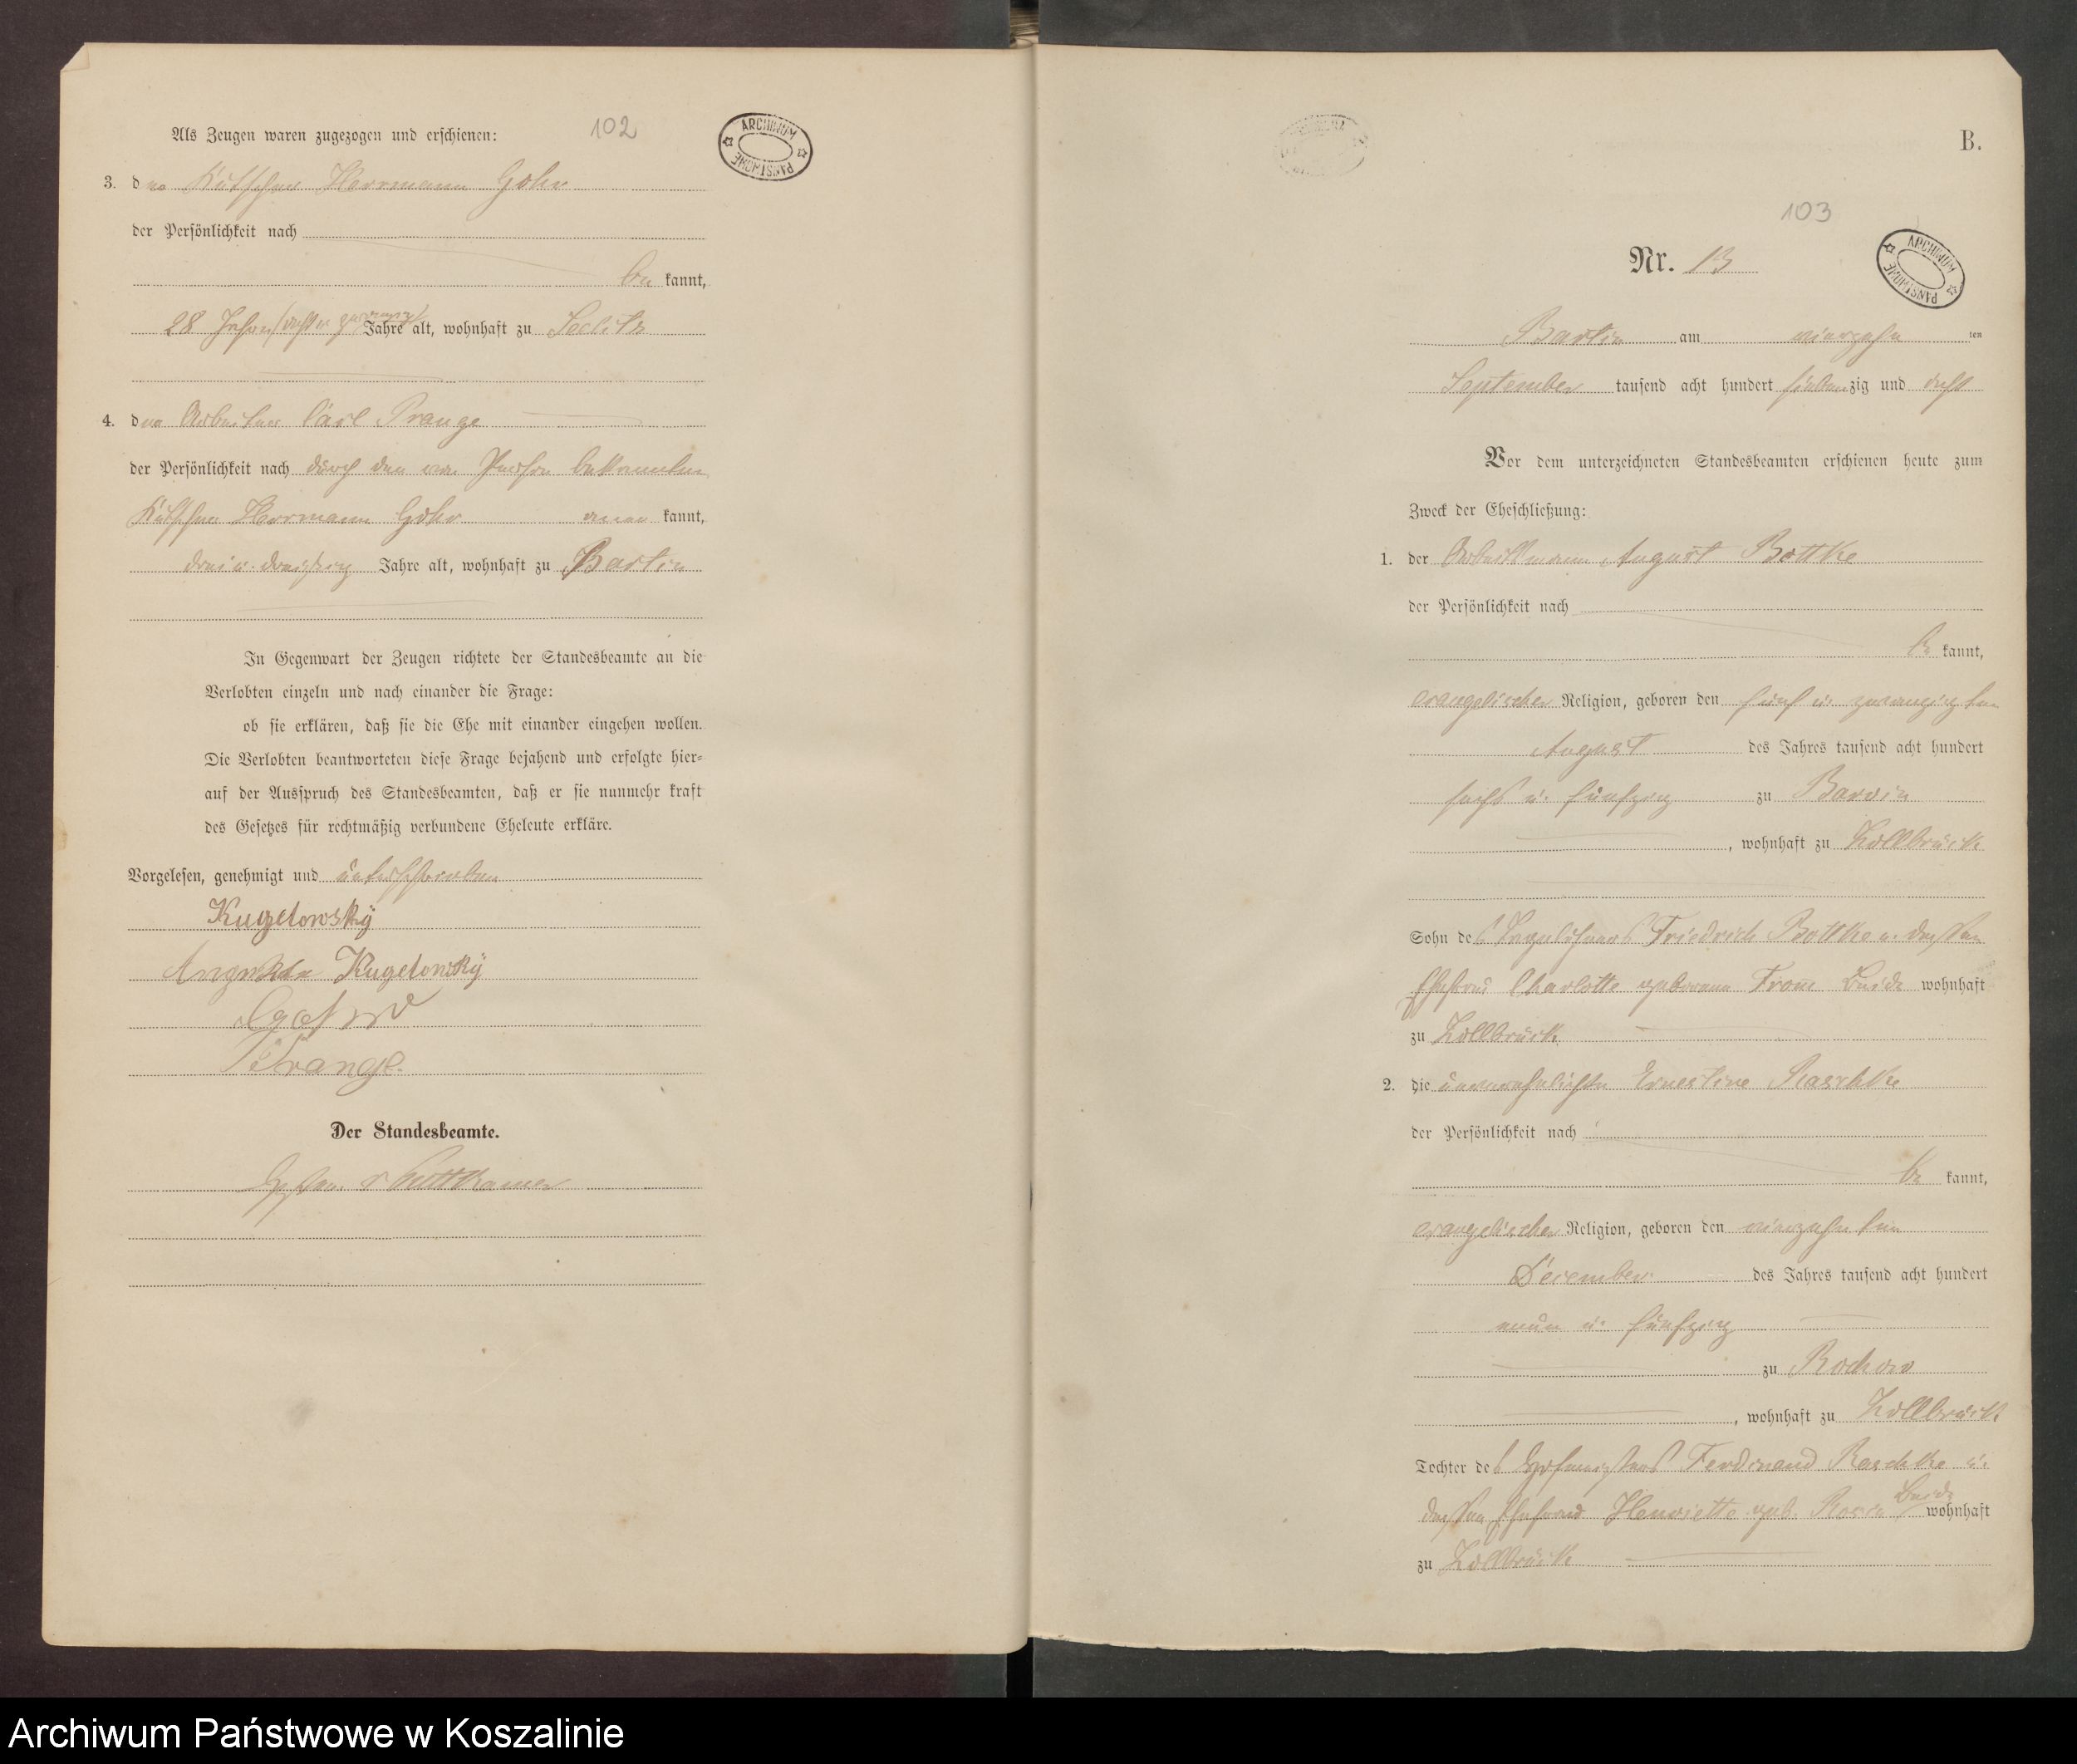 Als Zeugen waren zugezogen und erschienen:
102
ARCHIWUM PAŃSTWOWE
3. der Kutscher Herrmann Gohr
der Persönlichkeit nach
be kannt,
28 Jahre (acht u zwanzig) Jahre alt, wohnhaft zu Seelitz
4. der Arbeiter Carl Prange
der Persönlichkeit nach durch den von Person bekannten
Kutscher Herrmann Gohr aner kannt,
drei u. dreißig Jahre alt, wohnhaft zu Bartin
In Gegenwart der Zeugen richtete der Standesbeamte an die
Verlobten einzeln und nach einander die Frage:
ob sie erklären, daß sie die Ehe mit einander eingehen wollen.
Die Verlobten beantworteten diese Frage bejahend und erfolgte hier-
auf der Ausspruch des Standesbeamten, daß er sie nunmehr kraft
des Gesetzes für rechtmäßig verbundene Eheleute erkläre.
Vorgelesen, genehmigt und unterschrieben
Kugelowsky
Auguste Kugelowsky
Prange.
Der Standesbeamte.
v Puttkamer
B.
103
Nr. 13
ARCHIWUM PAŃSTWOWE
Bartin am vierzehn ten
September tausend acht hundert siebenzig und acht
Vor dem unterzeichneten Standesbeamten erschienen heute zum
Zweck der Eheschließung:
1. der Arbeitsmann August Bottke
der Persönlichkeit nach
be kannt,
evangelischer Religion, geboren den fünf u. zwanzigsten
August des Jahres tausend acht hundert
sechs u. fünfzig zu Barvin
, wohnhaft zu Zollbrück
Sohn des Tagelöhners Friedrich Bottke u. dessen
Ehefrau Charlotte geborene Fromm Beide wohnhaft
zu Zollbrück
2. die unverehelichte Ernestine Raschke
der Persönlichkeit nach
be kannt,
evangelischer Religion, geboren den vierzehnten
December des Jahres tausend acht hundert
neun u. fünfzig
zu Rochow
, wohnhaft zu Zollbrück
Tochter des Ferdinand Raschke u.
dessen Ehefrau Henriette geb. Beide wohnhaft
zu Zollbrück
Archiwum Państwowe w Koszalinie